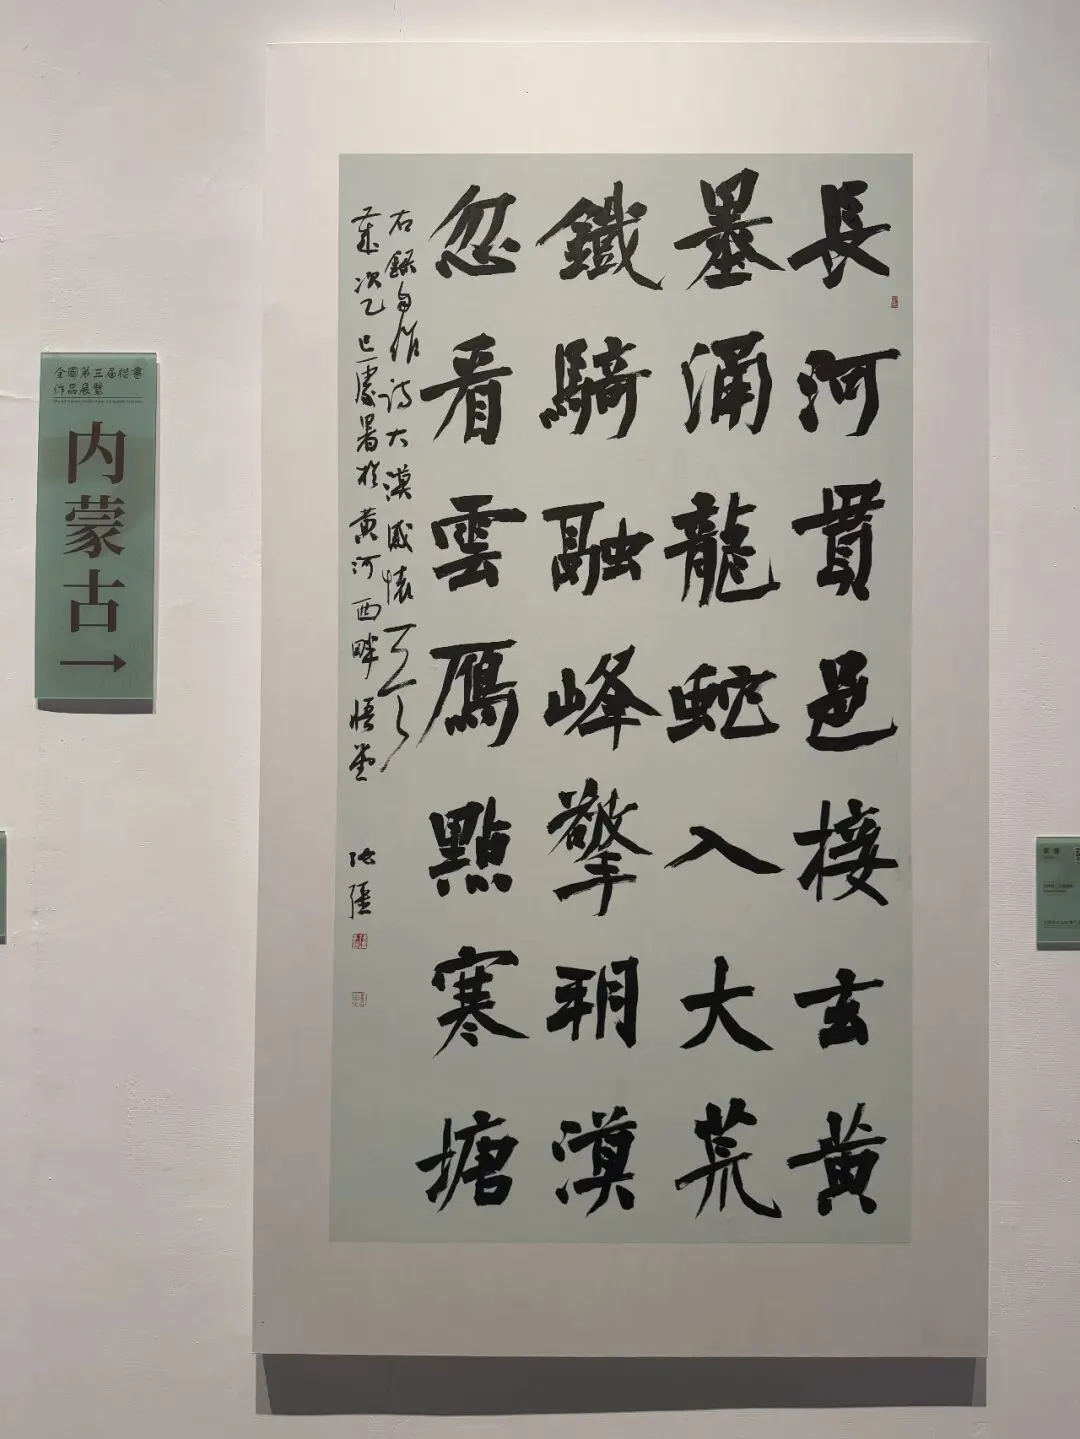 長河貫邑接玄黃
墨涌龍蛇入大荒
鐵騎融峰擎朔漠
忽看雲鴈點寒塘
右錄自作詩大漠感懷一首
歲次乙巳處暑於黃河西畔悟堂
張強
全國第三届楷書
作品展覽
内蒙古